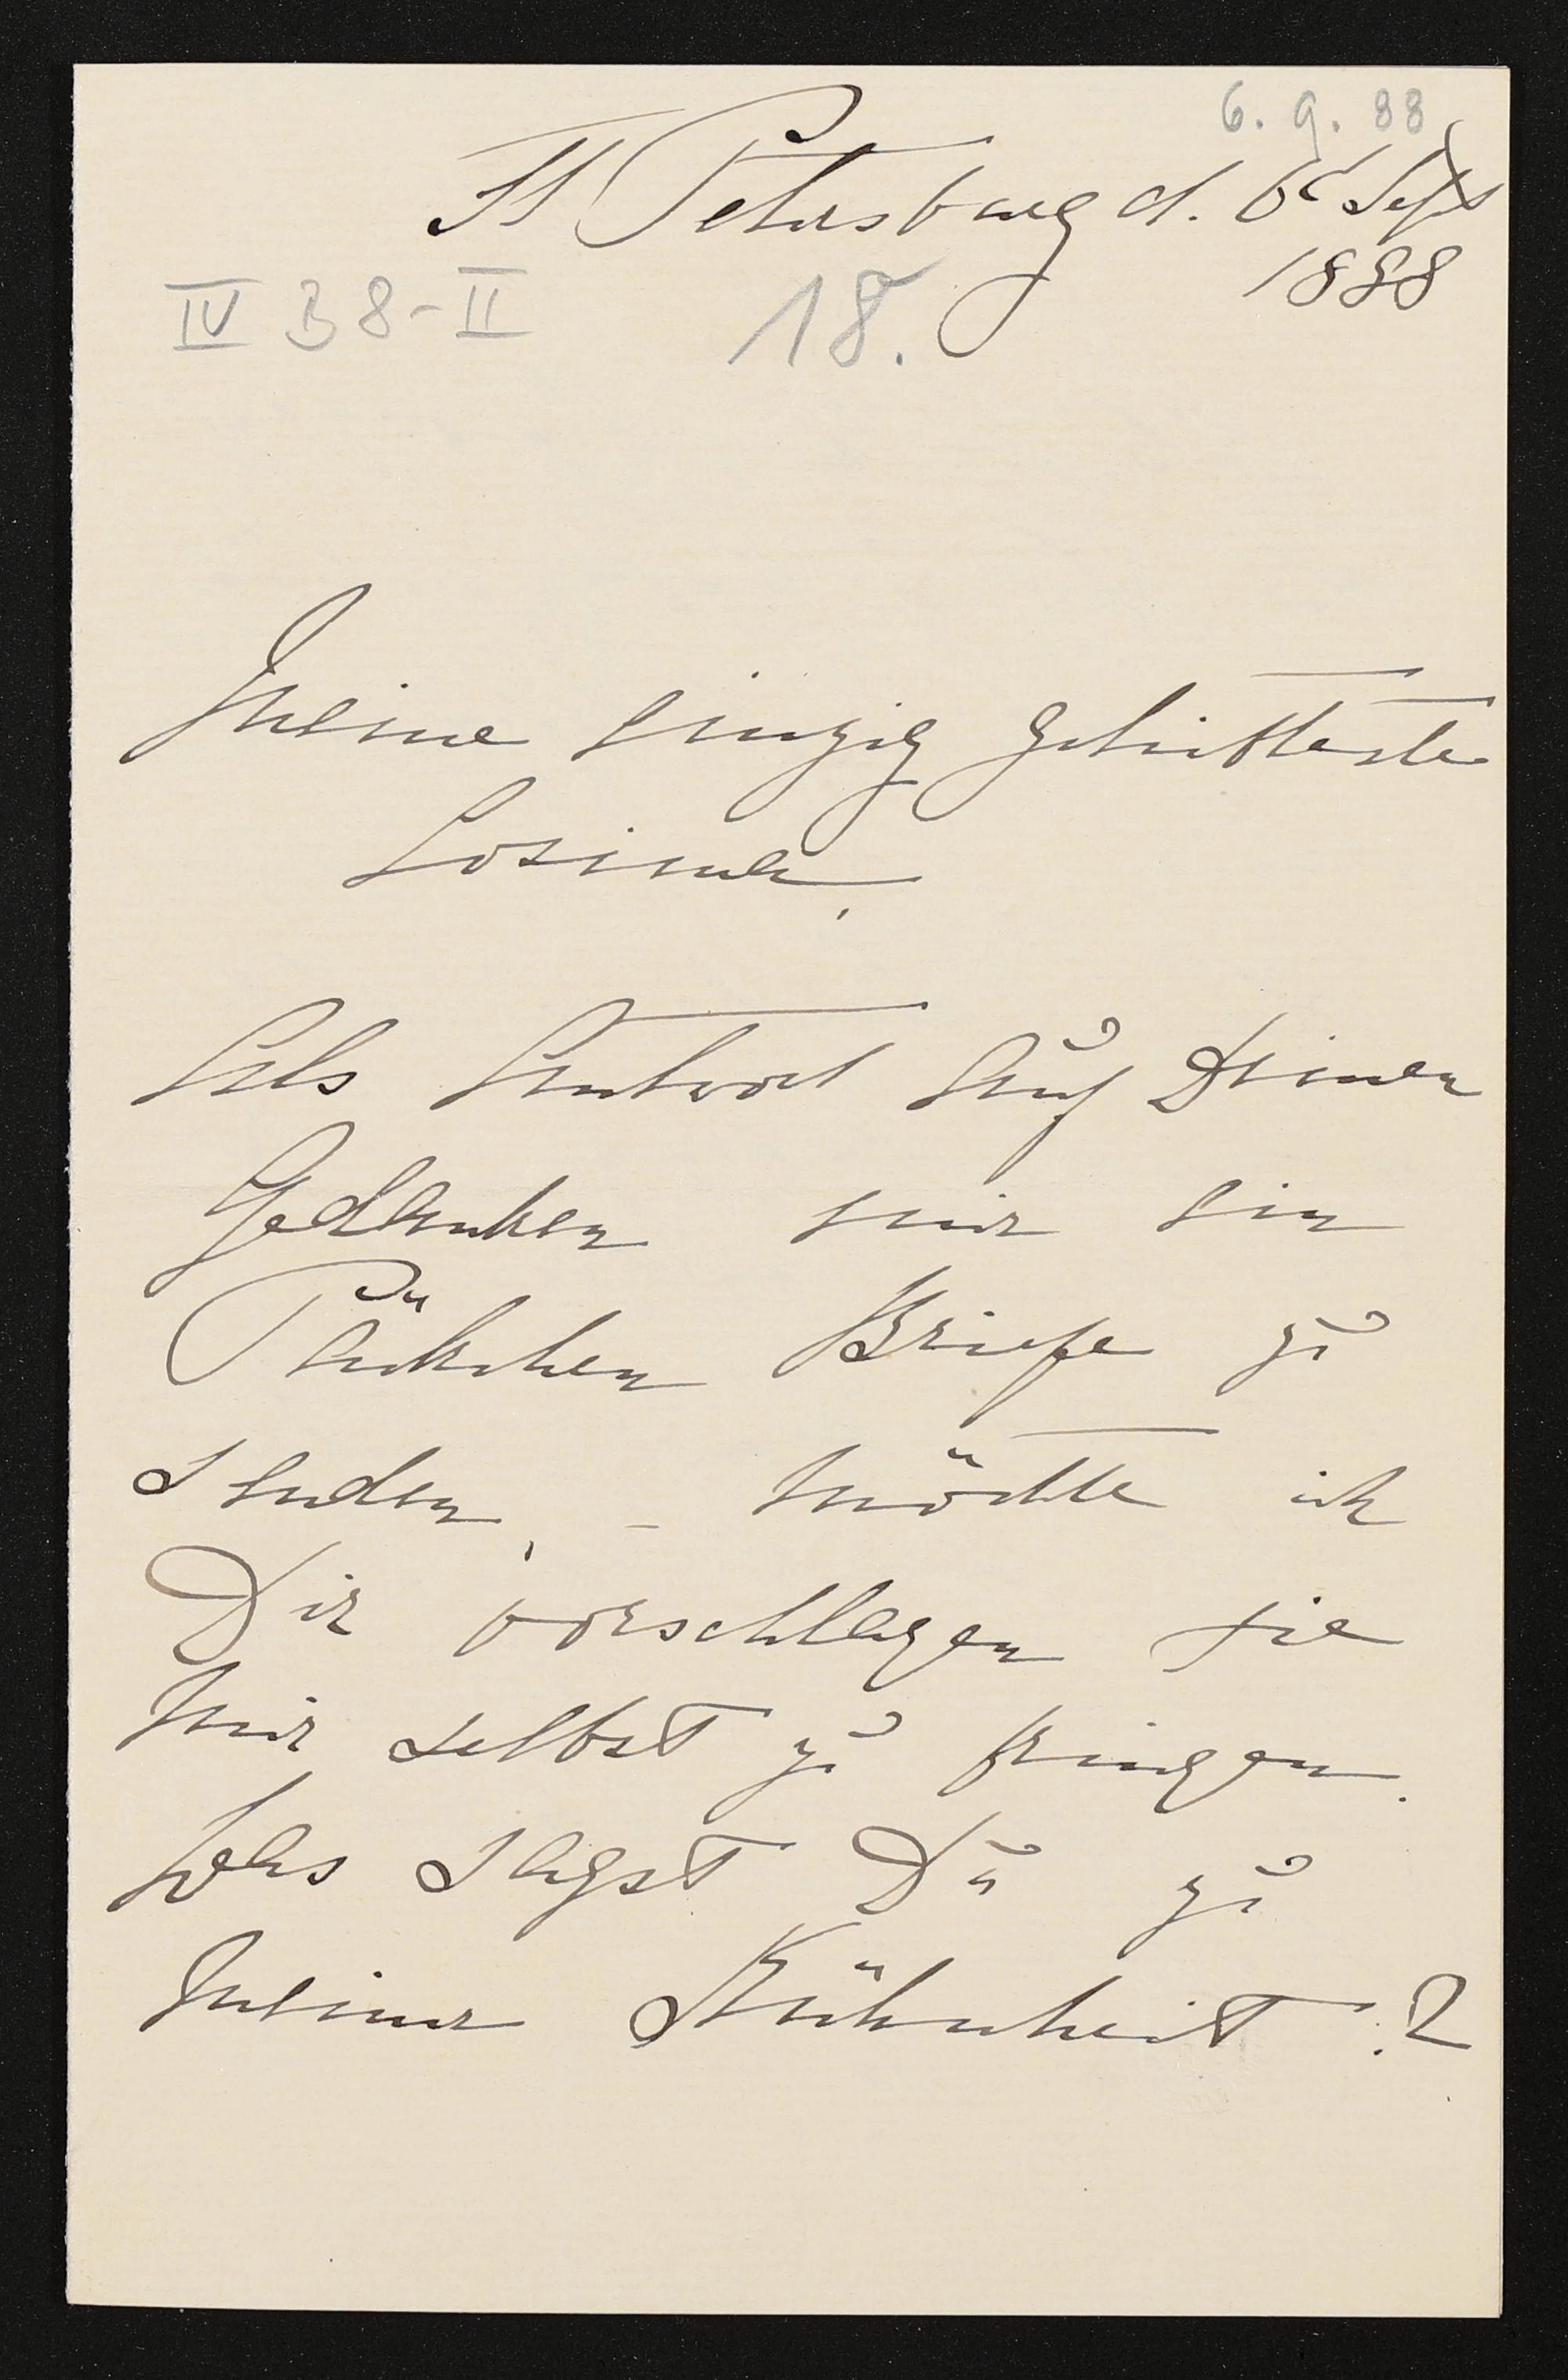 6. 9. 88
St Petersburg d. 6t Sept
1888
IV B 8-II 18.
Meine einzig geliebteste
Cosima,
Als Antwort auf Deinen
Gedanken mir ein
Päckchen Briefe zu
senden, – möchte ich
Dir vorschlagen sie
mir selbst zu bringen.
Was sagst Du zu
meiner Kühnheit?